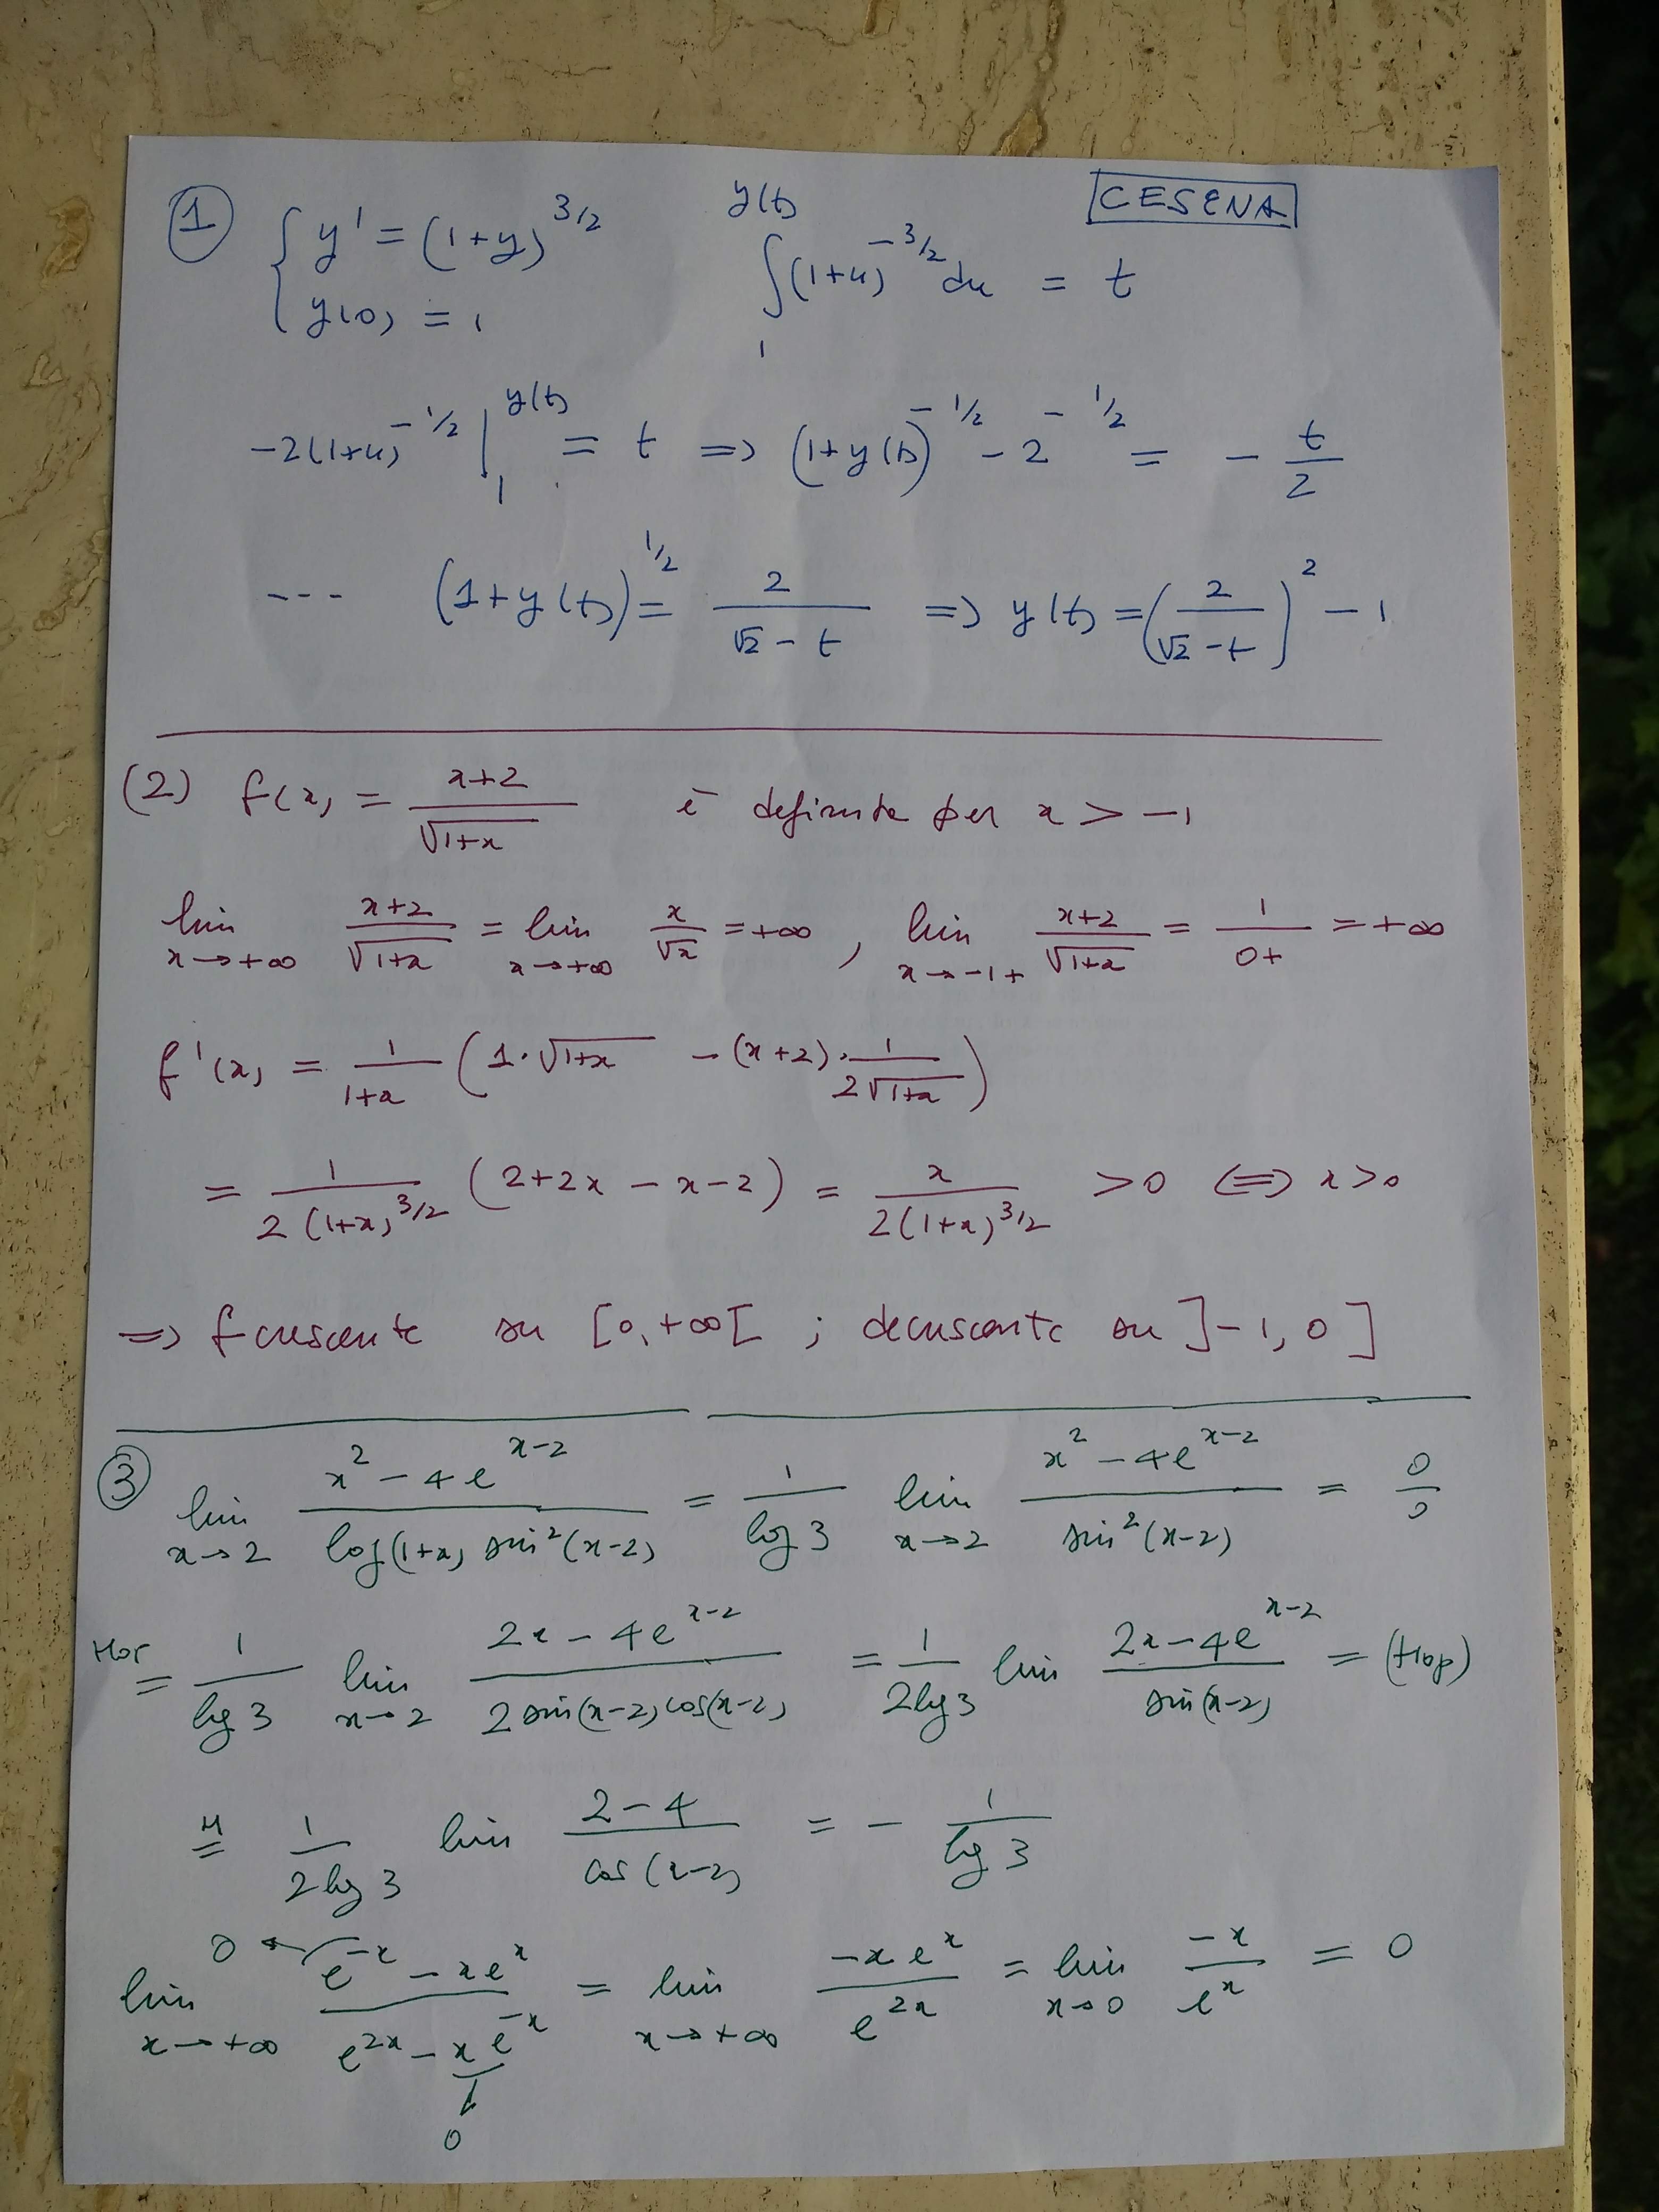 CESENA
① { y' = (1+y)^{3/2}   ∫_1^{y(t)} (1+u)^{-3/2} du = t
y(0) = 1
-2(1+u)^{-1/2} |_1^{y(t)} = t => (1+y(t))^{-1/2} - 2^{-1/2} = - t/2
--- (1+y(t))^{1/2} = 2/(√2 - t) => y(t) = (2/(√2 - t))^2 - 1
(2) f(x) = (x+2)/√(1+x) è definita per x > -1
lim_{x→+∞} (x+2)/√(1+x) = lim_{x→+∞} x/√x = +∞ , lim_{x→-1+} (x+2)/√(1+x) = 1/0+ = +∞
f'(x) = 1/(1+x) (1·√(1+x) - (x+2)·1/(2√(1+x)))
= 1/(2(1+x)^{3/2}) (2+2x-x-2) = x/(2(1+x)^{3/2}) >0 <=> x>0
=> f crescente su [0,+∞[ ; decrescente su ]-1,0]
③ lim_{x→2} (x^2 - 4e^{x-2})/(log(1+x) sin^2(x-2)) = 1/log 3 lim_{x→2} (x^2 - 4e^{x-2})/(sin^2(x-2)) = 0/0
Hop = 1/lg 3 lim_{x→2} (2x - 4e^{x-2})/(2 sin(x-2) cos(x-2)) = 1/(2lg 3) lim (2x - 4e^{x-2})/(sin(x-2)) = (Hop)
H = 1/(2lg 3) lim (2-4)/(cos(x-2)) = - 1/lg 3
0 ←
lim_{x→+∞} (e^{-x} - xe^x)/(e^{2x} - xe^{-x}) = lim_{x→+∞} (-xe^x)/(e^{2x}) = lim_{x→0} (-x)/(e^x) = 0
↓
0